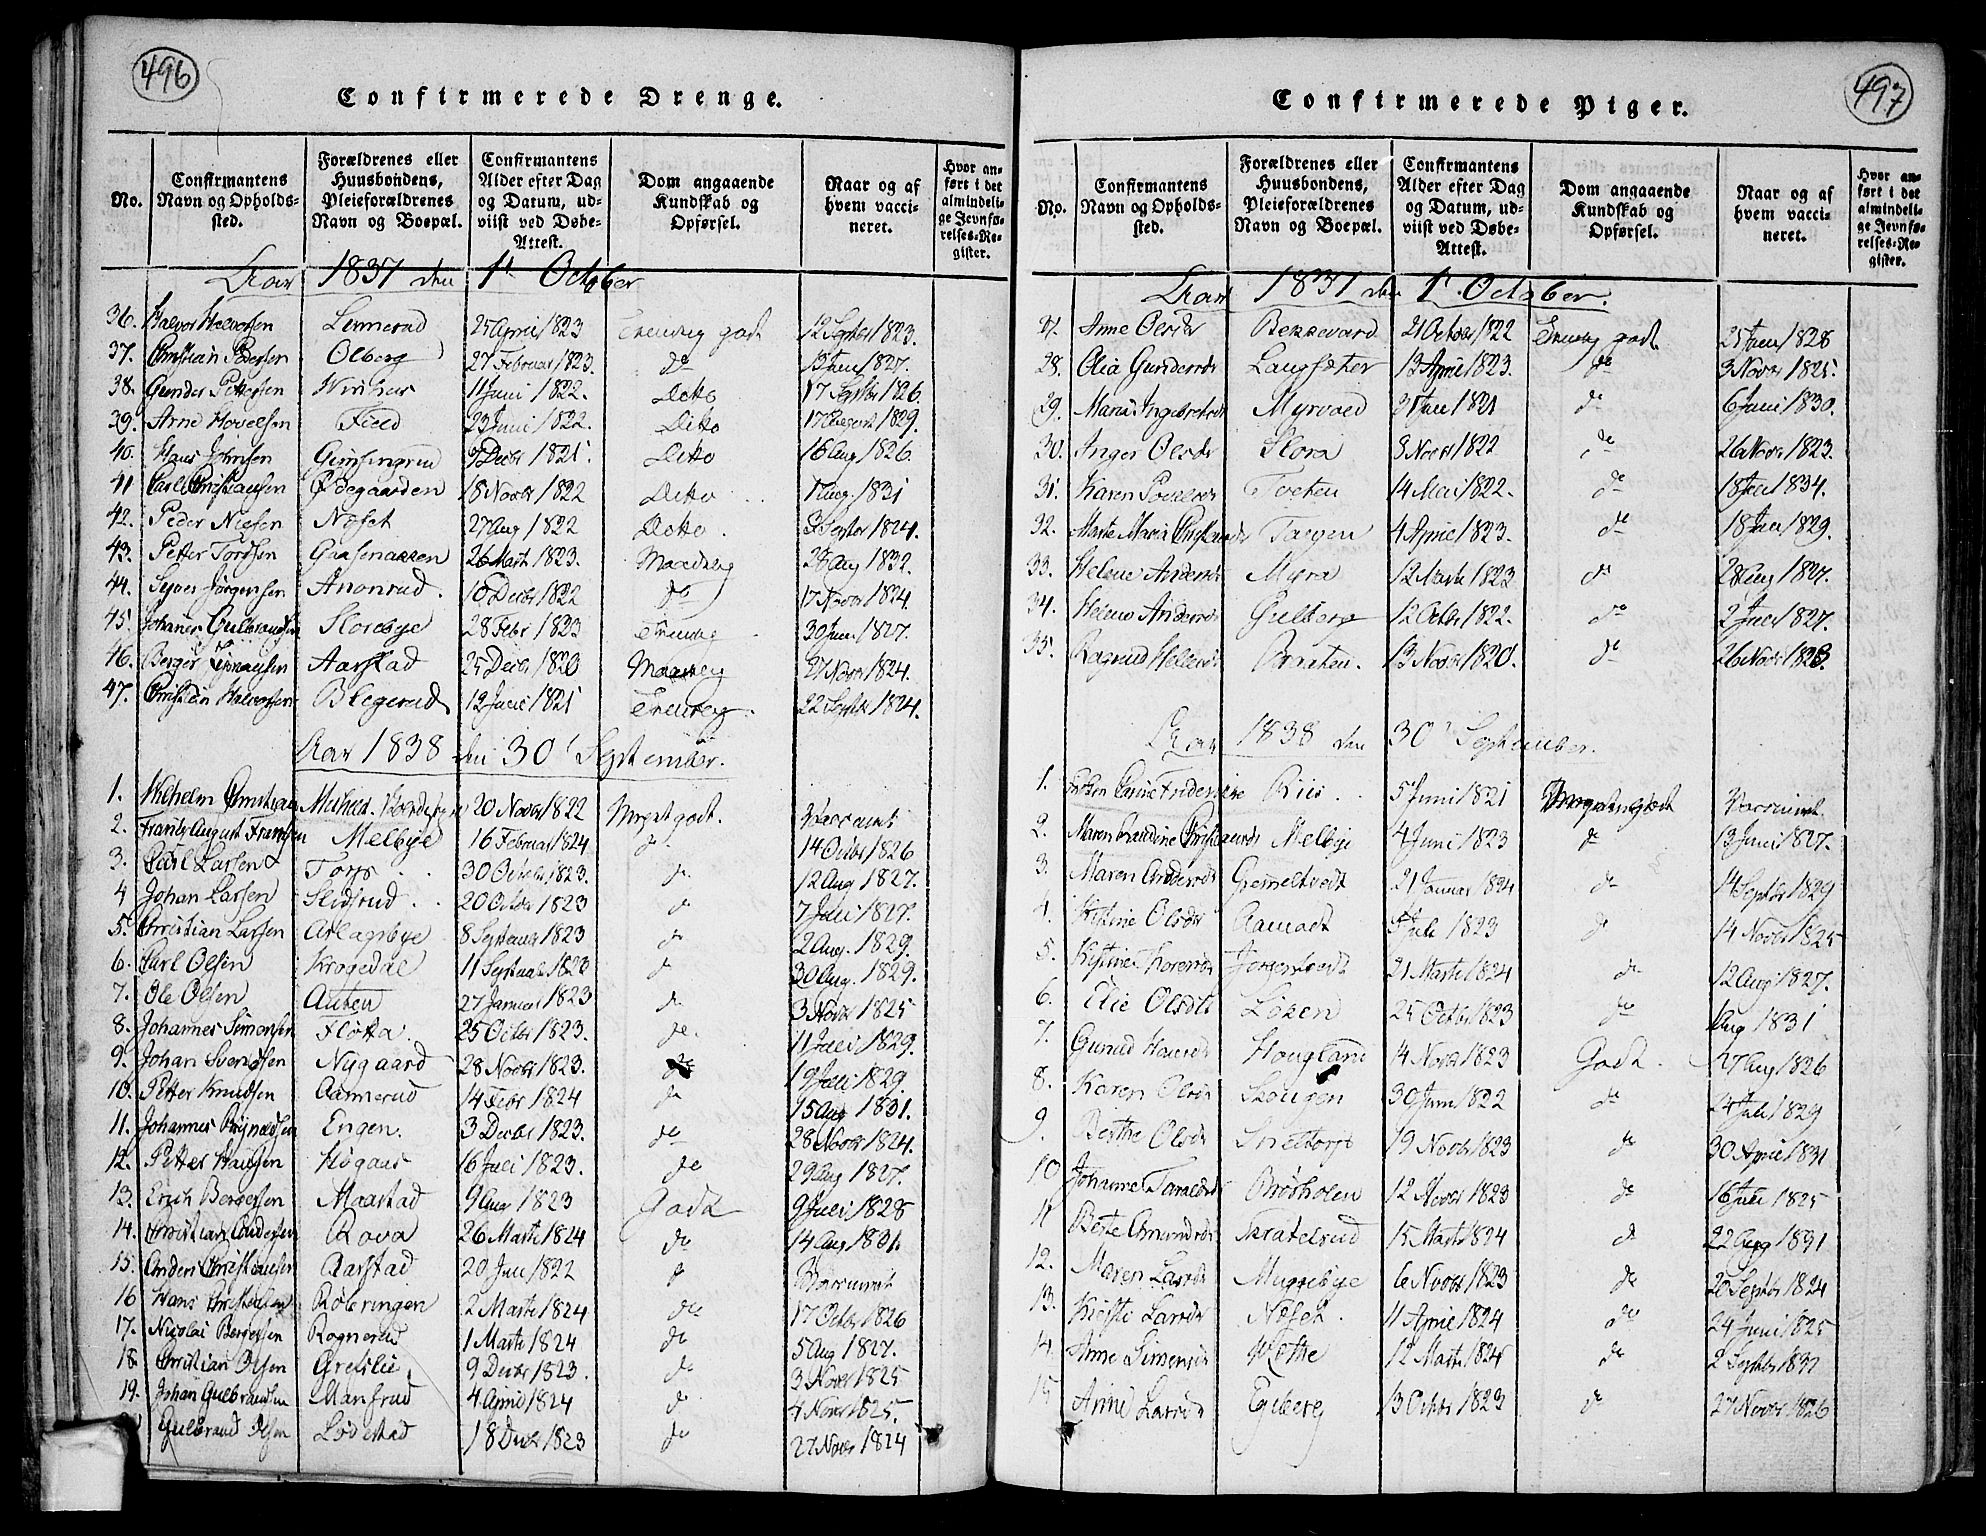 496
Confirmerede Drenge.
No. Confirmantens Navn og Opholdssted. Forældrenes eller Huusbondens, Pleieforældrenes Navn og Boepæl. Confirmantens Alder efter Dag og Datum, udviist ved Døbe-Attest. Dom angaaende Kundskab og Opførsel. Naar og af hvem vaccineret. Hvor anført i det almindelige Jevnførelses-Register.
Aar 1837 den 1t October
36. Halvor Halvorsen Lennerud 25 April 1823 Temmelig godt 12 Septbr 1823.
37. Christian Pedersen Olberg 27 Februar 1823. do 13 Juni 1827.
38. Gunder Pettersen 11 Juni 1822. Ditto 17 Septbr 1826.
39. Arne Hovelsen Field 23 Juni 1822. Ditto 17 August 1829.
40. Hans Johnsen Gimsingrud 9 Decbr 1821. Ditto 16 Aug 1826
41 Carl Christiansen Ødegaarden 18 Novbr 1822 Ditto 1 Aug. 1831
42. Peder Nielsen Næset 27 Aug 1822 Ditto. 3 Septbr 1824.
43. Petter Tordsen Gaasenakken 26 Marts 1823. Maadelig 28 Aug 1832.
44. Syver Jørgensen Anonrud. 10 Decbr 1822 do 17 Novbr 1824.
45. Johannes Gulbrandsen Slorebye 28 Febr 1823 30 Juni 1827.
46. Berger Aarstad 25 Decbr 1820 27 Novbr 1824.
47. Christian Halvorsen Blegerud 12 Juni 1821 22 Septbr 1824.
Aar 1838 den 30t September.
1. Wilhelm Christian 20 Novbr 1822 Meget godt. Vaccineret
2. Frantz August Frantsen Melbye 16 Februar 1824 do 14 Octbr 1826
3. Carl Larsen Torp 30 Octbr 1823. do 12 Aug 1827.
4 Johan Larsen Slidsrud 20 Octbr 1823 do 7 Juli 1827.
5. Christian Larsen 8 September 1823 do 2 Aug. 1829.
6. Carl Olsen Krogedal 11 Septembr 1823 do 30 Aug. 1829.
7. Ole Olsen Auten 27 Januar 1823 do 3 Novbr 1825
8. Johannes Simonsen Fløtta 25 Octbr 1823. do. 11 Juli 1829.
9. Johan Svendsen Nygaard 28 Novbr 1823. do 19 Juli 1829.
10. Petter Knudsen Aamerud 14 Febr 1824 do 15 Aug 1831.
11. Johannes Engen. 3 Decbr 1823. do 28 Novbr 1824.
12. Petter Hansen 16 Juli 1823. do 29 Aug 1827.
13. Erich Bergersen Maastad 9 Aug 1823 Godt 9 Juli 1828
14. Christian Andersen Rova 26 Marts 1824 do 14 Aug 1831.
15. Anders Christiansen Aarstad 20 Juni 1822 do Vaccineret
16 Hans Røbringen 2 Marts 1824 do 17 Octbr 1826
17. Nicolai Bergersen Rognerud 1 Marts 1824 do 5 Aug 1827.
18 Christian Olsen Grefslie 9 Decbr 1823. do 3 Novbr 1825
19. Johan Gulbrandsen Mansrud 4 April 1824 do 4 Novbr 1825.
Gulbrand Olsen Lødestad 18 Decbr 1823 do 27 Novbr 1824
497
Confirmerede Piger.
No. Confirmantens Navn og Opholdssted. Forældrenes eller Huusbondens, Pleieforældrenes Navn og Boepæl. Confirmantens Alder efter Dag og Datum, udviist ved Døbe-Attest. Dom angaaende Kundskab og Opførsel. Naar og af hvem vaccineret. Hvor anført i det almindelige Jevnførelses-Register.
Aar 1837 den 1t October.
27. Anne Olsdr Bekkevard 21 Octobr 1822 godt 25 Juni 1828
28. Olia Gundersdr Langsæter 13 April 1823. do 3 Novbr 1825.
29. Maria Ingebretsdr Myrvold 21 1821 do 6 Juni 1830.
30. Inger Olsdr Slora 8 Novbr 1822 do 26 Novbr 1823.
31. Karen Toeten 14 Mai 1822. do 1834.
32. Marte Maria Christiansdr Torgen 4 April 1823. do 1829.
33. Helene Andersdr Myra 12 Marts 1823 do 28 Aug 1827.
34. Helene Andersdr Gulberg 12 Octbr 1822. do 2 1827.
35. Ragnild Braaten. 13 Novbr 1820. do 26 Novbr 1823.
Aar 1838 den 30t September.
1. Riis 5 Juni 1821 Vaccineret.
2. Maren Christiansdr Melbye 4 Juni 1823 do 13 Juni 1827.
3. Maren Andersdr Gremeltvedt 21 Januar 1824 do 14 Septbr 1829
4. Kistine Olsdr Aamodt Juli 1823 do 14 Novbr 1825
5. Kistine 21 Marts 1824 do 12 Aug 1827.
6. Elie Olsdr Løken 25 Octbr 1823 do Aug 1831
7. Gunild Hougland 4 Novbr 1823 Godt. 27 Aug 1826
8. Karen Olsdr Skougen 30 Juni 1822 do 24 Juli 1829
9. Berthe Olsdr Sneltorp 19 Novbr 1823 do 30 April 1831
10 Johanne Brøsholen 12 Novbr 1823 do 16 Juli 1825
11 Berte Amundsdr Kratelsrud 15 Marts 1824 do 22 Aug 1831
12. Maren Larsdr Muggebye 6 Novbr 1823 do 20 Septbr 1824
13. Kirsti Larsdr Næset. 11 April 1824 do 24 Juni 1825
14. Anne Simensdr 12 Marts 1824 do 2 Septbr 1831
15 Anne Larsdr Egeberg 13 Octbr 1823 do 27 Novbr 1826